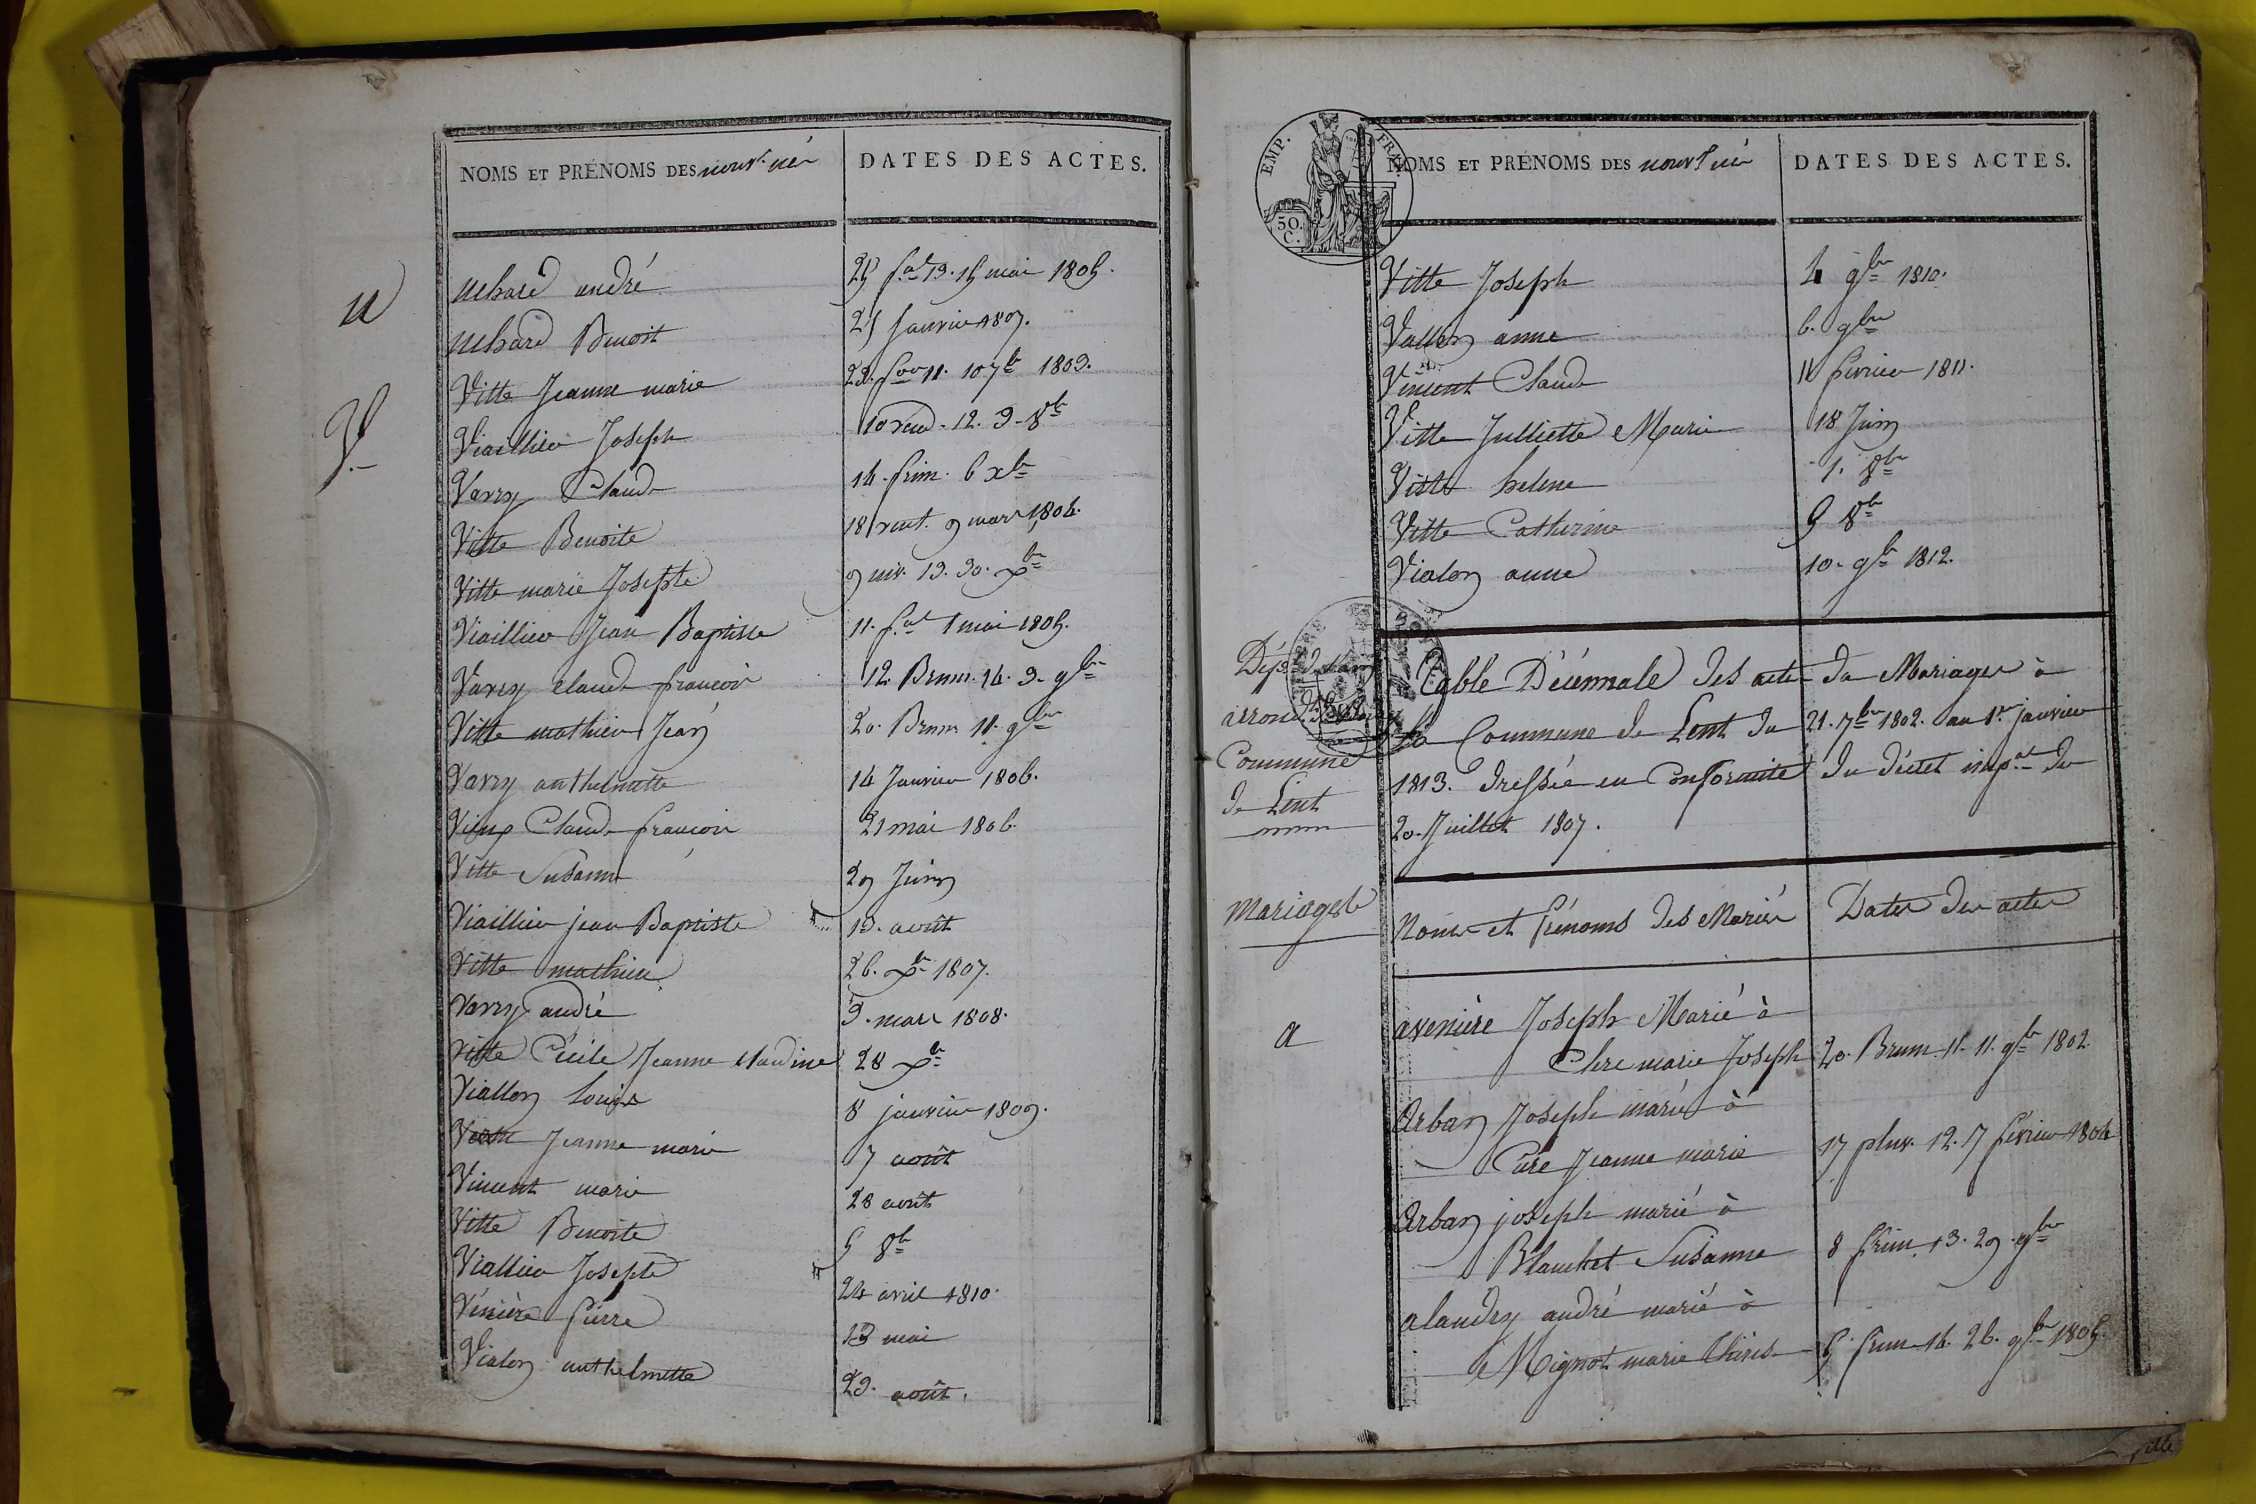 NOMS ET PRÉNOMS DES nouv.t né
DATES DES ACTES.
U
uchard andré 25 f.al 13. 15 mai 1805.
uchard Benoit 25 Janvier 1807.
Vitte Jeanne marie 23. f.or 11. 10 7.bre 1803.
V.
Viaillier Joseph 10 vend. 12. 3. 8.bre
Varry Claude 14. frim. 6 X.bre
Vitte Benoite 18 vent. 9 mars 1804.
Vitte marie Josepte 9 niv. 13. 30. X.bre
Viaillier Jean Baptiste 11. f.al 1 mai 1805.
Varry claude françois 12. Brum. 14. 3. 9.bre
Vitte mathieu Jean 20. Brum 11. 9.bre
Varry anthelmette 14 Janvier 1806.
Claude françois 21 mai 1806.
Vitte Susanne 29 Juin
Viaillier jean Baptiste 13. août
Vitte mathieu 26. X.bre 1807.
Varry andré 3. mars 1808.
Vitte Cécile Jeanne claudine 28 X.bre
Viallon Louise 8 janvier 1809.
Jeanne marie 7 août
Vincent marie 28 août
Vitte Benoite 5 8.bre
Viallier Josepte 24 avril 1810.
Vénière Pierre 13 mai
Vialon anthelmette 29. août.
EMP. FRA.
50. C.
NOMS ET PRÉNOMS DES nouv.t né
DATES DES ACTES.
Vitte Joseph 4 9.bre 1810.
Vallon anne 6. 9.bre
Vincent Claude 11 février 1811.
Vitte Julliette Marie 18 Juin
Vitte helene 1. 8.bre
Vitte Catherine 5 8.bre
Vialon anne 10. 9.bre 1812.
Dép.t de l'ain
arrond.t
Commune
de Lent
Table Décennale des actes de Mariages à
la Commune de Lent du 21. 7.bre 1802. au 1.er janvier
1813. dressée en conformité du décret imp.al du
20. Juillet 1807.
Mariages
Noms et Prénoms des Mariés Dates des actes
a
avenière Joseph Marié à
Chre marie Joseph 20. Brum. 11. 11. 9.bre 1802.
Arban Joseph marié à
Cure Jeanne marie 17 pluv. 12. 7 février 1804
Arban joseph marié à
Blanchet Susanne 8 frim. 13. 29. 9.bre
alandry andré marié à
Mignot marie Thérèse 5 frim. 14. 26. 9.bre 1805.